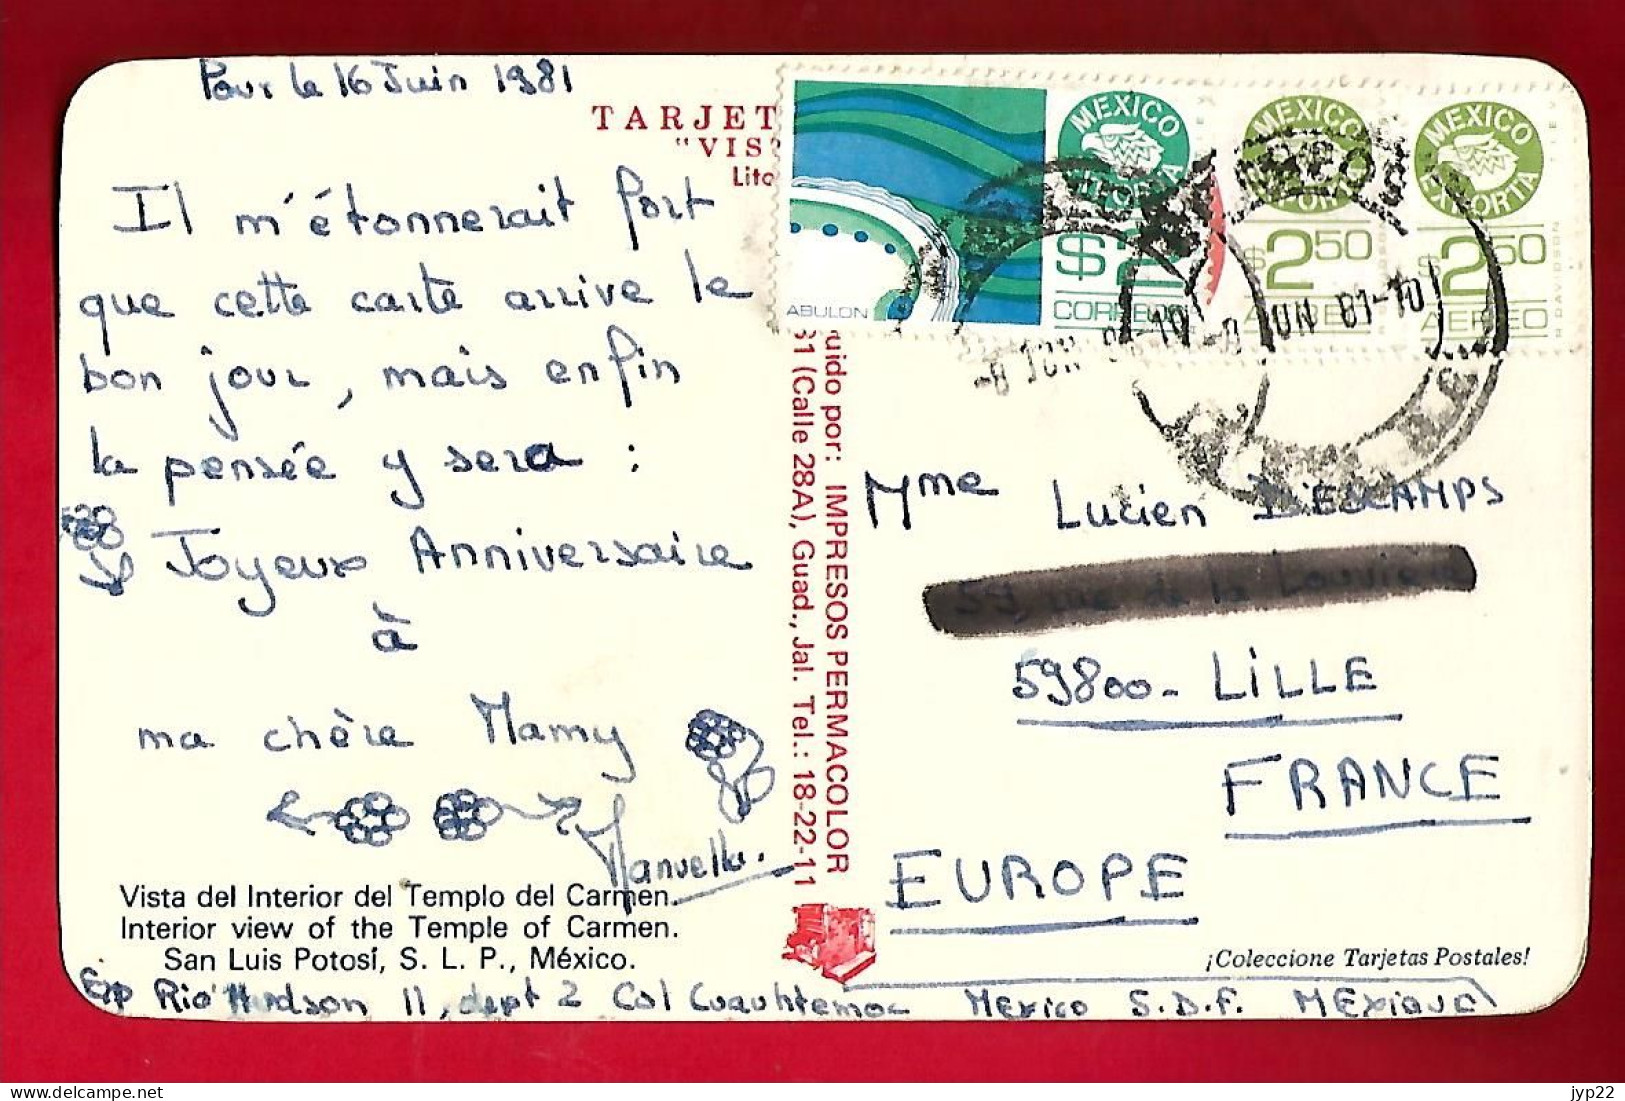 Pour le 16 Juin 1981
TARJET
"VIS
Lito
Il m'étonnerait fort
que cette carte arrive le
bon jour, mais enfin
la pensée y sera :
Joyeux Anniversaire
à
ma chère Mamy
Manuella.
Vista del Interior del Templo del Carmen.
Interior view of the Temple of Carmen.
San Luis Potosí, S. L. P., México.
Exp Rio Hudson 11, dept 2 Col Cuauhtemoc Mexico 5. D.F. MExique
uido por: IMPRESOS PERMACOLOR
61 (Calle 28A), Guad., Jal. Tel.: 18-22-11
ABULON
MEXICO
EXPORTA
$2
CORREOS
MEXICO
EXPORTA
$2 50
AEREO
MEXICO
EXPORTA
$2 50
AEREO
-8 JUN 81-10
-8 JUN 81-10
Mme Lucien DESCAMPS
59800 - LILLE
FRANCE
EUROPE
¡Coleccione Tarjetas Postales!
jyp22